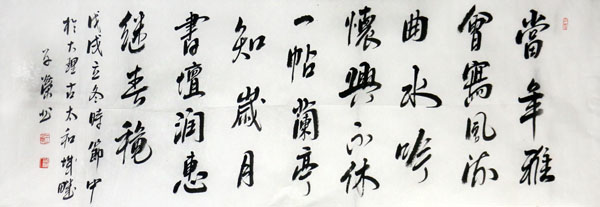 當年雅
會寫風流
曲水吟
懷興不休
一帖蘭亭
知歲月
書壇润惠
继春穐
戊戌立冬時節中
於大理古太和城賦
子濠书